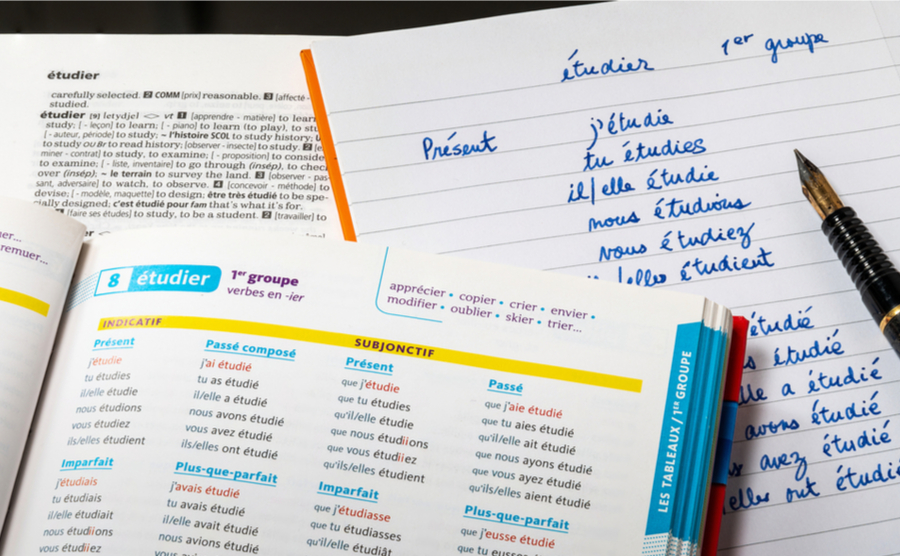 étudier
carefully selected. 2 COMM [prix] reasonable. 3 [affecté -
studied.
étudier [9] letydjel <> vt 1 [apprendre - matière] to learn
study; [- leçon] to learn; [- piano] to learn (to play), to
[- auteur, période] to study; ~ l'histoire SCOL to study history;
to study ou Br to read history; [observer - insecte] to study. 2
miner - contrat] to study, to examine; [- proposition] to conside
to examine; [- liste, inventaire] to go through (insép), to chec
over (insép); ~ le terrain to survey the land. 3 [observer - pas-
sant, adversaire] to watch, to observe. 4 [concevoir - méthode] to
devise; [- modèle, maquette] to design; être très étudié to be spe-
cially designed; c'est étudié pour fam that's what it's for.
[faire ses études] to study, to be a student. 2 [travailler] to
étudier 1er groupe
Présent j'étudie
tu étudies
il/elle étudie
nous étudions
vous étudiez
/elles étudient
étudié
étudié
a étudié
avons étudié
avez étudié
elles ont étudié
remuer...
8 étudier 1er groupe
verbes en -ier
apprécier • copier • crier • envier •
modifier • oublier • skier • trier...
INDICATIF SUBJONCTIF
Présent
j'étudie
tu étudies
il/elle étudie
nous étudions
vous étudiez
ils/elles étudient
Passé composé
j'ai étudié
tu as étudié
il/elle a étudié
nous avons étudié
vous avez étudié
ils/elles ont étudié
Présent
que j'étudie
que tu étudies
qu'il/elle étudie
que nous étudiions
que vous étudiiez
qu'ils/elles étudient
Passé
que j'aie étudié
que tu aies étudié
qu'il/elle ait étudié
que nous ayons étudié
que vous ayez étudié
qu'ils/elles aient étudié
Imparfait
j'étudiais
tu étudiais
il/elle étudiait
nous étudiions
vous étudiiez
Plus-que-parfait
j'avais étudié
tu avais étudié
il/elle avait étudié
nous avions étudié
Imparfait
que j'étudiasse
que tu étudiasses
qu'il/elle étudiât
Plus-que-parfait
que j'eusse étudié
que tu eusses
LES TABLEAUX / 1ER GROUPE